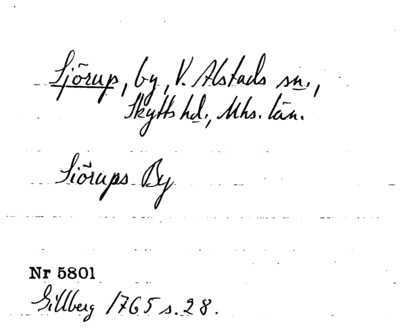 Sjörup, by, V. Alstads sn.,
Skytts hd., Mhs. län.
Siörups By
Nr 5801
Gillberg 1765 s. 28.